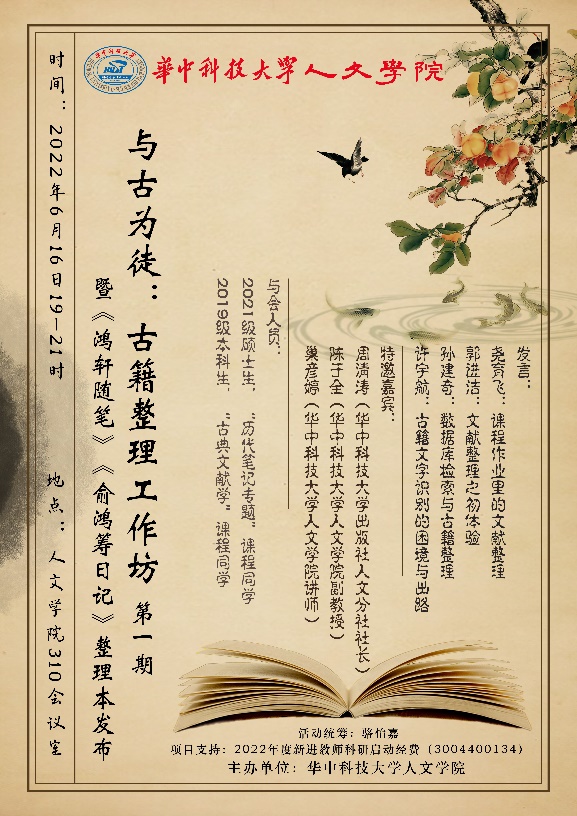 華中科技大學人文學院
时间：2022年6月16日19—21时 地点：人文学院310会议室
与古为徒：古籍整理工作坊 第一期
暨《鸿轩随笔》《俞鸿筹日记》整理本发布
发言：
尧育飞：课程作业里的文献整理
郭进洁：文献整理之初体验
孙建奇：数据库检索与古籍整理
许宇航：古籍文字识别的困境与出路
特邀嘉宾：
周清涛（华中科技大学出版社人文分社社长）
陈于全（华中科技大学人文学院副教授）
巢彦婷（华中科技大学人文学院讲师）
与会人员：
2021级硕士生，“历代笔记专题”课程同学
2019级本科生，“古典文献学”课程同学
活动统筹：骆怡嘉
项目支持：2022年度新进教师科研启动经费（3004400134）
主办单位：华中科技大学人文学院